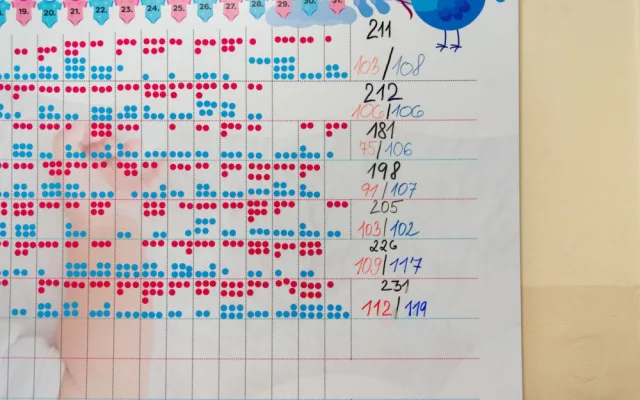 19. 20. 21. 22. 23. 24. 25. 26. 27. 28. 29. 30. 31.
211
103/108
212
106/106
181
75/106
198
91/107
205
103/102
226
109/117
231
112/119